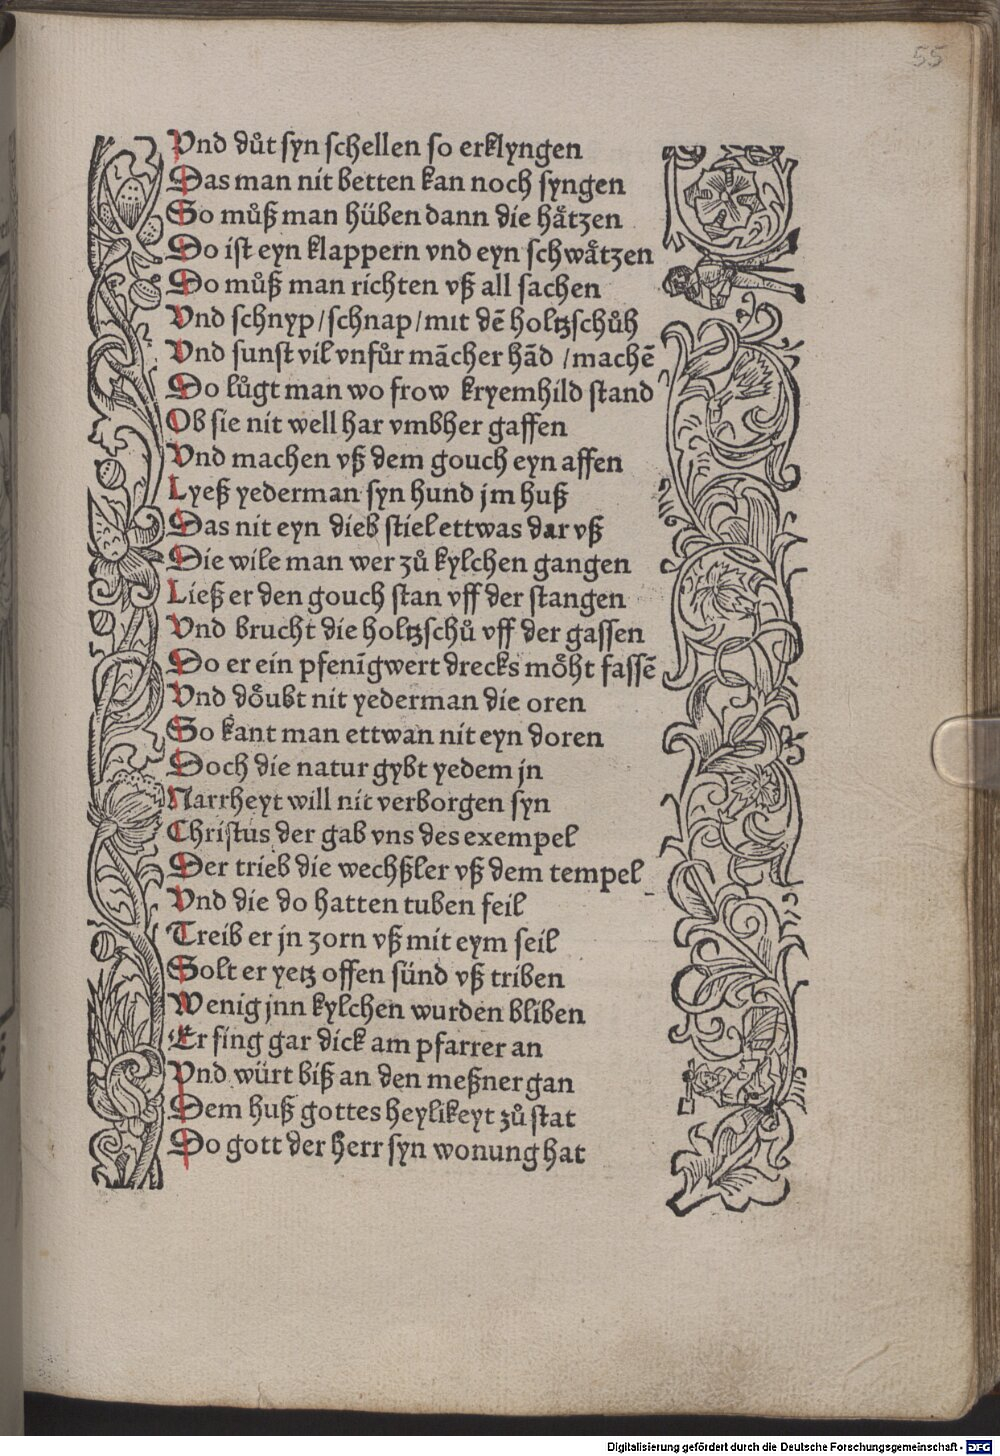 55
Vnd důt syn schellen so erklyngen
Das man nit betten kan noch syngen
So můß man hüben dann die hätzen
Do ist eyn klappern vnd eyn schwätzen
Do můß man richten vß all sachen
Vnd schnyp/schnap/mit dē holtzschůh
Vnd sunst vil vnfůr mācher hād /machē
Do lůgt man wo frow kryemhild stand
Ob sie nit well har vmbher gaffen
Vnd machen vß dem gouch eyn affen
Lyeß yederman syn hund jm huß
Das nit eyn dieb stiel ettwas dar vß
Die wile man wer zů kylchen gangen
Ließ er den gouch stan vff der stangen
Vnd brucht die holtzschů vff der gassen
Do er ein pfenīgwert drecks möht fassē
Vnd döubt nit yederman die oren
So kant man ettwan nit eyn doren
Doch die natur gybt yedem jn
Narrheyt will nit verborgen syn
Christus der gab vns des exempel
Der trieb die wechßler vß dem tempel
Vnd die do hatten tuben feil
Treib er jn zorn vß mit eym seil
Solt er yetz offen sünd vß triben
Wenig jnn kylchen wurden bliben
Er fing gar dick am pfarrer an
Vnd würt biß an den meßner gan
Dem huß gottes heylikeyt zů stat
Do gott der herr syn wonung hat
Digitalisierung gefördert durch die Deutsche Forschungsgemeinschaft - DFG